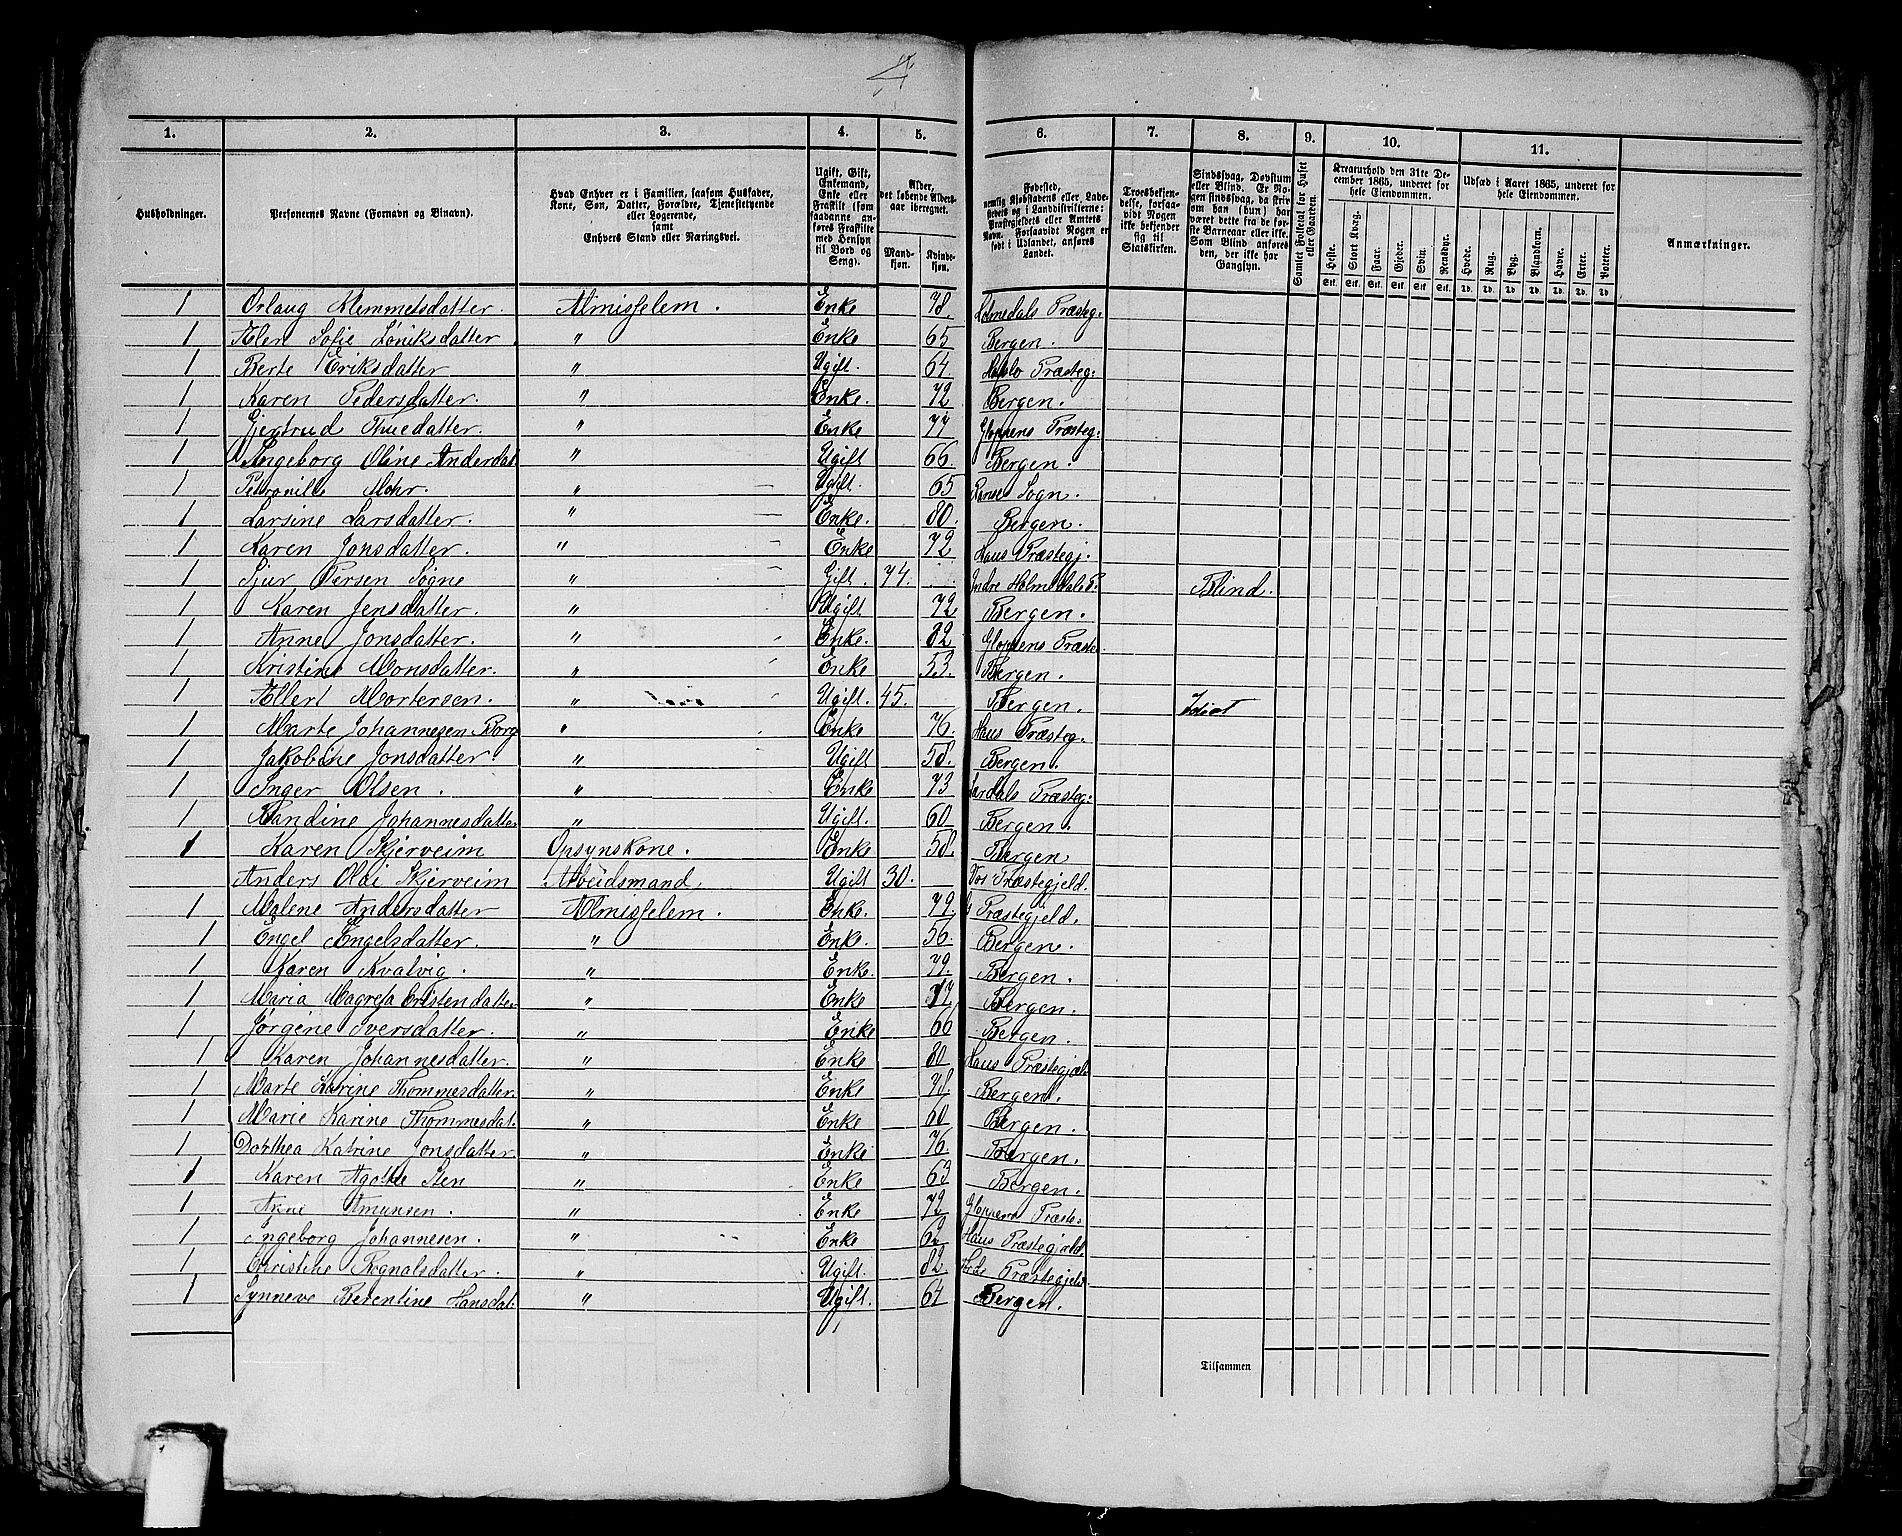 1. 2. 3. 4. 5. 6. 7. 8. 9. 10. 11.
Husholdninger.
Personernes Navne (Fornavn og Binavn).
Hvad Enhver er i Familien, saasom Husfader,
Kone, Søn, Datter, Forældre, Tjenestetyende
eller Logerende,
samt
Enhvers Stand eller Næringsvei.
Ugift, Gift,
Enkemand,
Enke eller
Fraskilt (som
saadanne an-
føres Fraskilte
med Hensyn
til Bord og
Seng).
Alder,
det løbende Alders-
aar iberegnet.
Mand-
kjøn.
Kvinde-
kjøn.
Fødested,
nemlig Kjøbstadens eller Lade-
stedets og i Landdistrikterne:
Præstegjeldets eller Amtets
Navn. Forsaavidt Nogen er
født i Udlandet, anføres
Landet.
Troesbekjen-
delse, forsaa-
vidt Nogen
ikke bekjender
sig til
Statskirken.
Sindssvag, Døvstum
eller Blind. Er No-
gen sindssvag, da skriv
om han (hun) har
været dette fra de før-
ste Barneaar eller ikke.
Som Blind anføres
den, der ikke har
Gangsyn.
Samlet Folketal for Huset
eller Gaarden.
Kreaturhold den 31te De-
cember 1865, underet for
hele Eiendommen.
Heste. Stort Kvæg. Faar. Gjeder. Svin. Rensdyr.
Stk. Stk. Stk. Stk. Stk. Stk.
Udsæd i Aaret 1865, underet for
hele Eiendommen.
Hvede. Rug. Byg. Blandkorn. Havre. Erter. Poteter.
Td. Td. Td. Td. Td. Td. Td.
Anmærkninger.
1 Orlaug Klemmetsdatter. Almisselem. Enke 78. Holmedals Præsteg:
1 Elen Sofie Løniksdatter " Enke 65 Bergen.
1 Berte Eriksdatter " Ugift. 64. Hafslo Præsteg:
1 Karen Pedersdatter. " Enke. 72 Bergen.
1 Gjertrud Thuedatter. " Enke. 77 Gloppens Præsteg:
1 Ingeborg Oline Anderdat " Ugift 66. Bergen.
1 Petronille Mohr. " Ugift. 65 Sogn.
1 Larsine Larsdatter. " Enke. 80. Bergen.
1 Karen Jonsdatter. " Enke 72 Haus Præstegj.
1 Sjur Persen Søgne " Gift. 74. Indre Holmedals P. Blind.
1 Karen Jensdatter. " Ugift. 72 Bergen.
1 Anne Jonsdatter. " Enke. 82 Gloppens Præste
1 Kristine Monsdatter. " Enke 53. Bergen.
1 Ellert Mortersen. Ugift. 45. Bergen. Idiot
1 Marte Johannesen Borg " Enke 76. Haus Præsteg.
1 Jakobine Jonsdatter. " Ugift 58. Bergen.
1 Inger Olsen. " Enke 73 Præsteg:
1 Randine Johannesdatter " Ugift. 60 Bergen.
1 Karen Skjerveim Opsynskone. Enke 58. Bergen
Anders Olai Skjerveim Arbeidsmand. Ugift 30. Vos Præstegjeld.
1 Malene Andersdatter Almisselem. Enke. 79. Præstegjeld.
1 Engel Engelsdatter. " Enke. 56. Bergen.
1 Karen Kvalvig. " Enke. 79. Bergen.
1 Maria Magreta Cristendatter " Enke Bergen.
1 Jørgine Iversdatter. " Enke 66 Bergen.
1 Karen Johannesdatter. " Enke 80. Haus Præstegjel.
1 Marte Karine Thommesdatter. " Enke 78. Bergen.
1 Marie Karine Thommesdat. " Enke 60 Bergen.
1 Dorthea Katrine Jonsdatter " Enke 76. Bergen.
1 Karen Agothe Sten " Enke 63 Bergen.
1 Amunsen. " Enke 72 Gloppens Præste:
1 Ingeborg Johannesen. " Enke Haus Præstegjeld.
1 Christine Rognalsdatter. " Ugift. 82. Præstegjeld
1 Synneve Berentine Hansdat. " Ugift. 64 Bergen.
Tilsammen